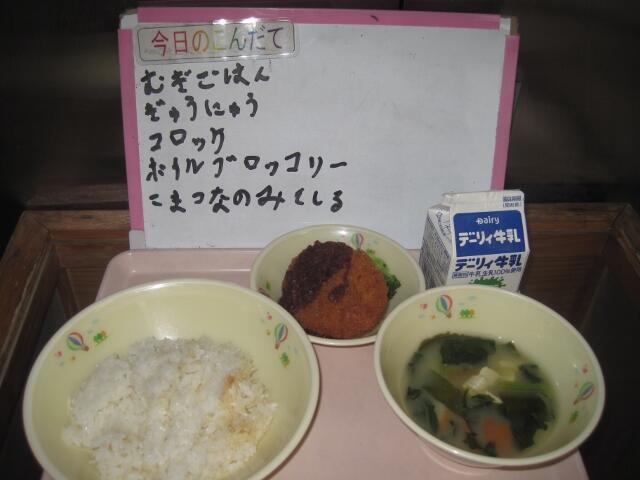 今日のこんだて
むぎごはん
ぎゅうにゅう
コロッケ
ボイルブロッコリー
こまつなのみそしる
Dairy
デーリィ牛乳
デーリィ牛乳
牛乳 生乳100%使用